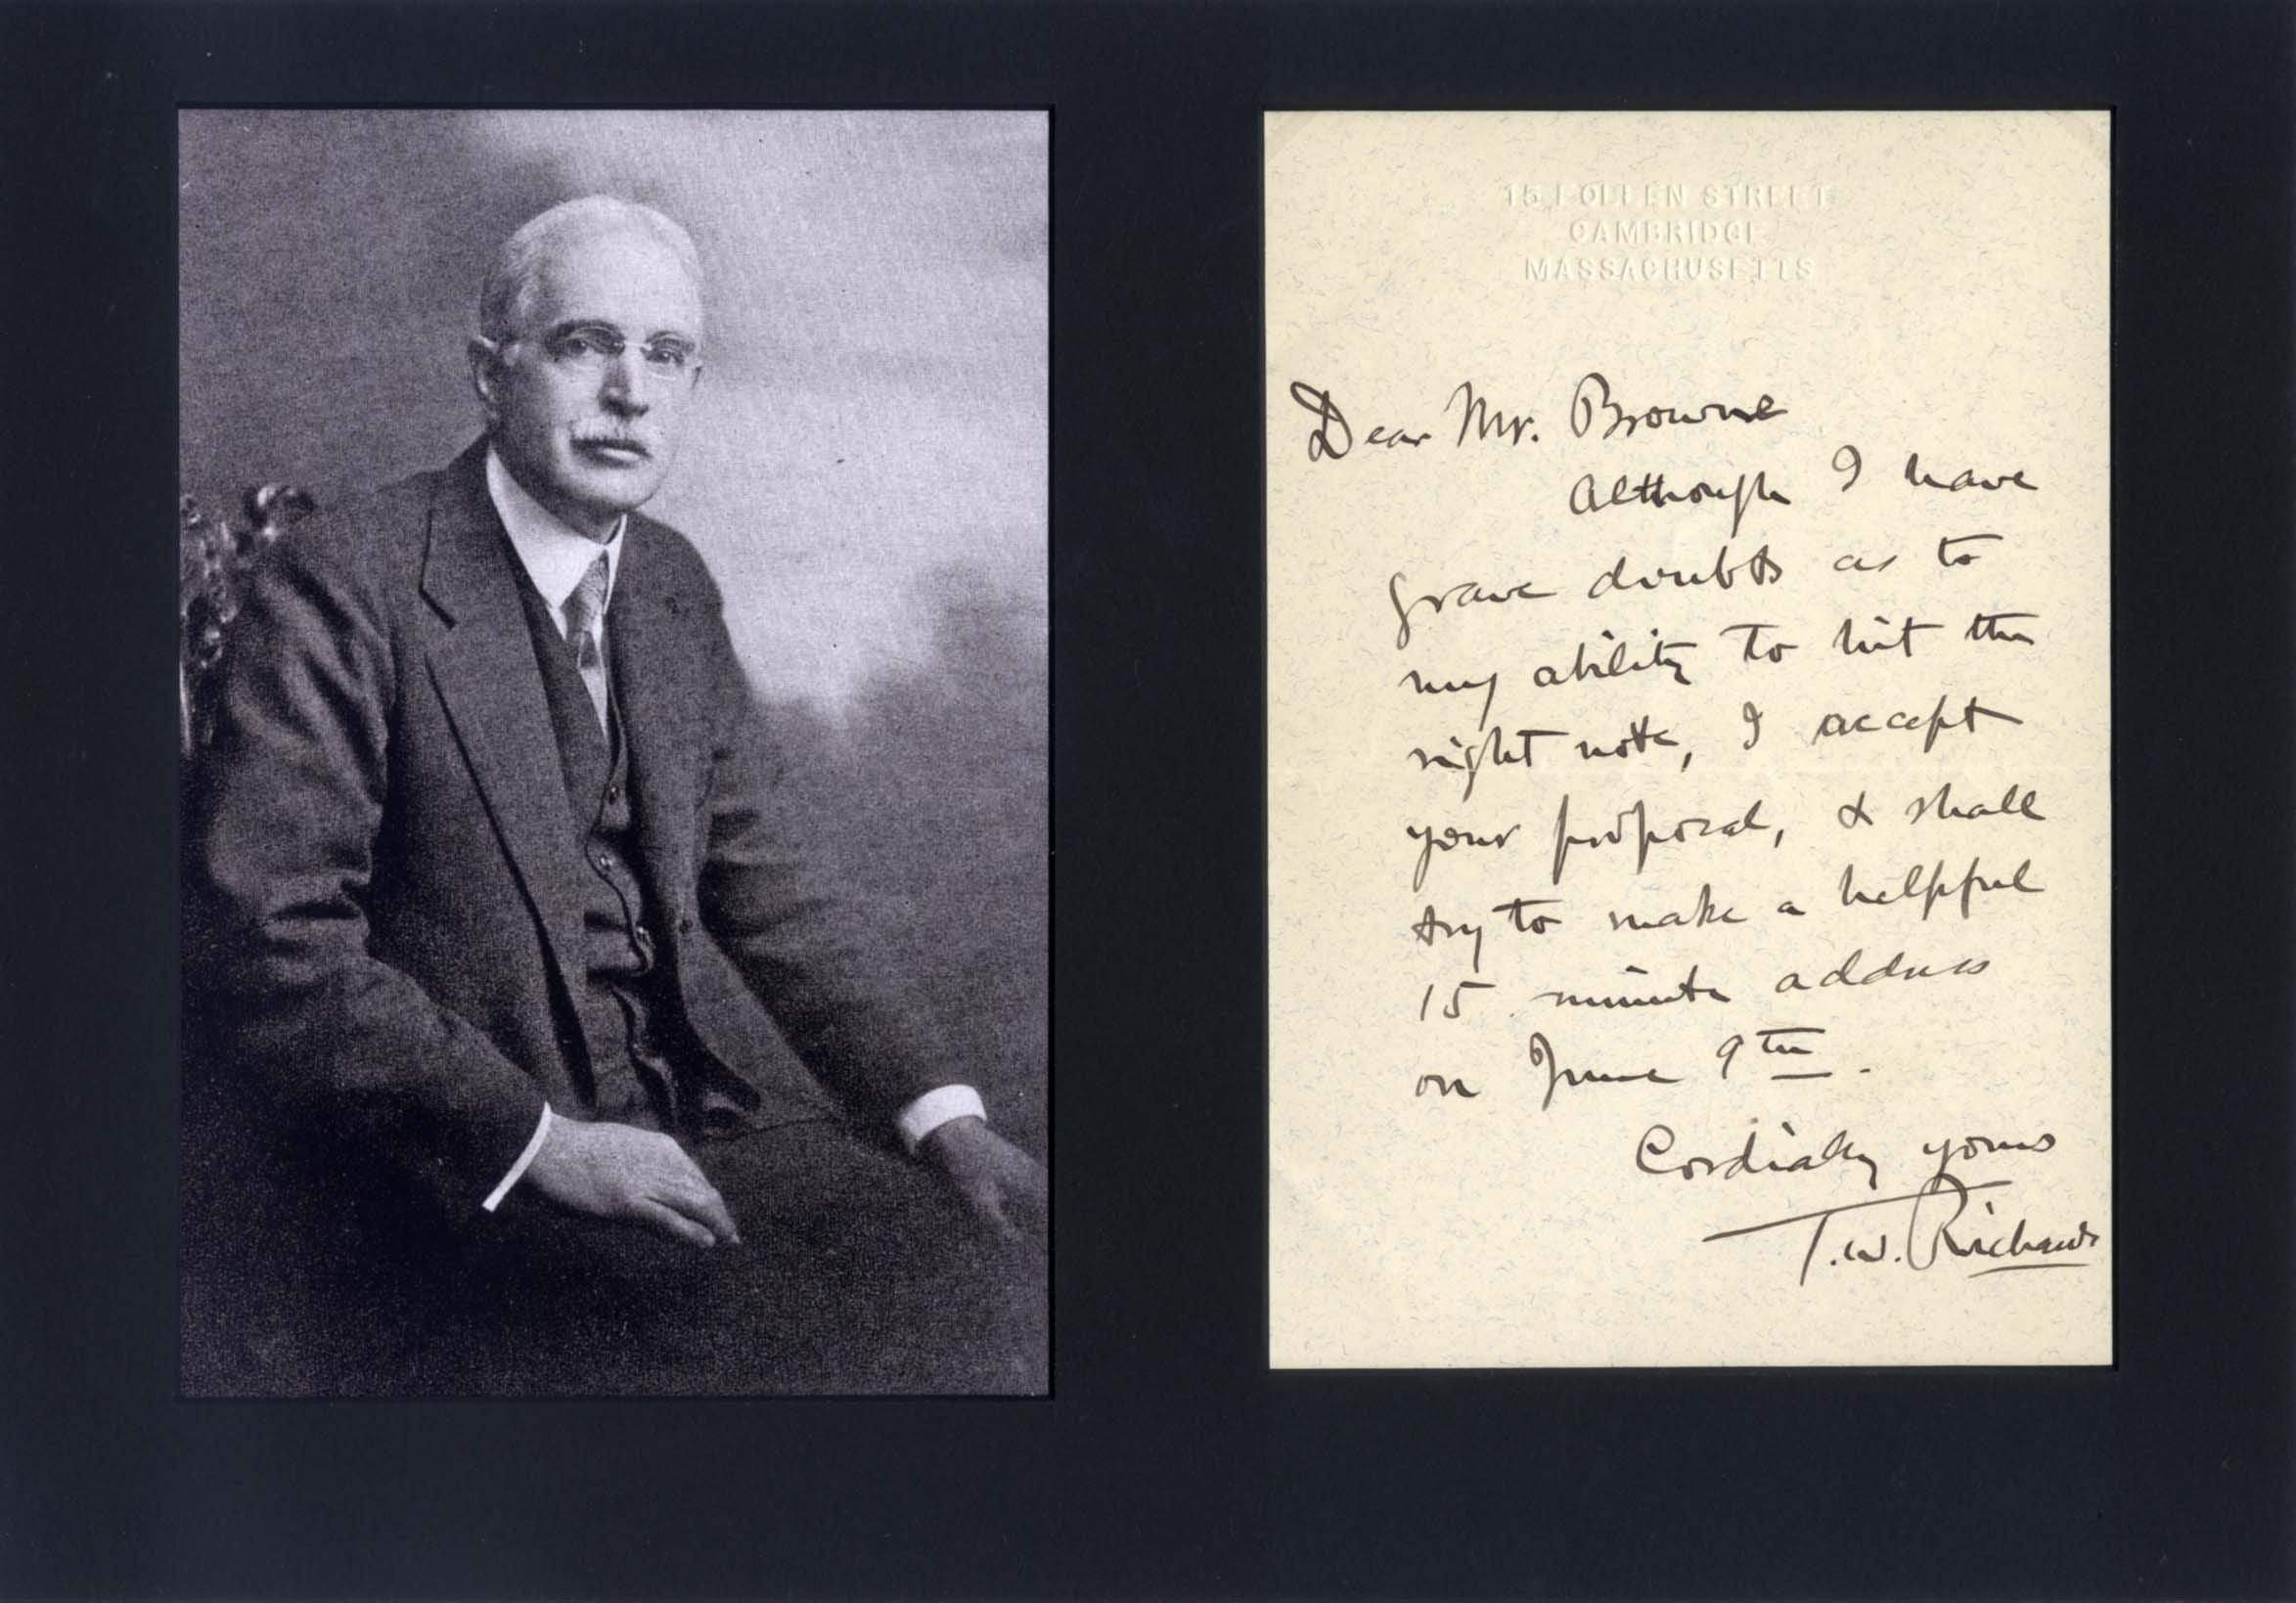 15 FOLLEN STREET
CAMBRIDGE
MASSACHUSETTS
Dear Mr. Browne
Although I have
grave doubts as to
my ability to hit the
right note, I accept
your proposal, & shall
try to make a helpful
15 minute address
on June 9th.
Cordially yours
T.W. Richards